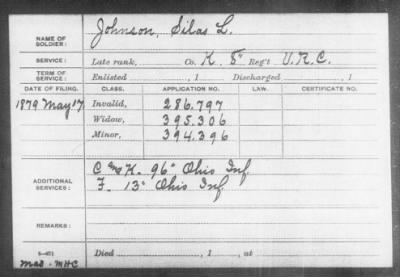 NAME OF SOLDIER: Johnson, Silas L.
SERVICE: Late rank, Co. K 8" Reg't U.R.C.
TERM OF SERVICE: Enlisted , 1 Discharged , 1
DATE OF FILING. CLASS. APPLICATION NO. LAW. CERTIFICATE NO.
1879 May 17 Invalid, 286.797
Widow, 395.306
Minor, 394.396
ADDITIONAL SERVICES: C K. 96" Ohio Inf
F. 13" Ohio Inf
REMARKS:
Died , 1 , at